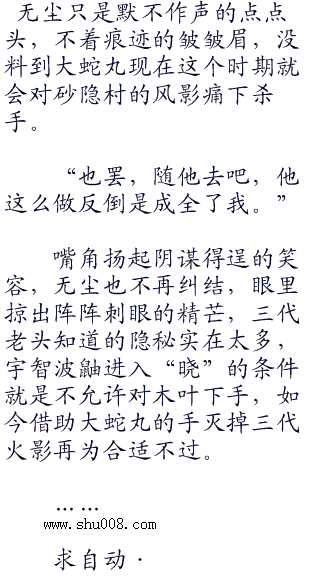 无尘只是默不作声的点点
头，不着痕迹的皱皱眉，没
料到大蛇丸现在这个时期就
会对砂隐村的风影痛下杀
手。
“也罢，随他去吧，他
这么做反倒是成全了我。”
嘴角扬起阴谋得逞的笑
容，无尘也不再纠结，眼里
掠出阵阵刺眼的精芒，三代
老头知道的隐秘实在太多，
宇智波鼬进入“晓”的条件
就是不允许对木叶下手，如
今借助大蛇丸的手灭掉三代
火影再为合适不过。
……
www.shu008.com
求自动·